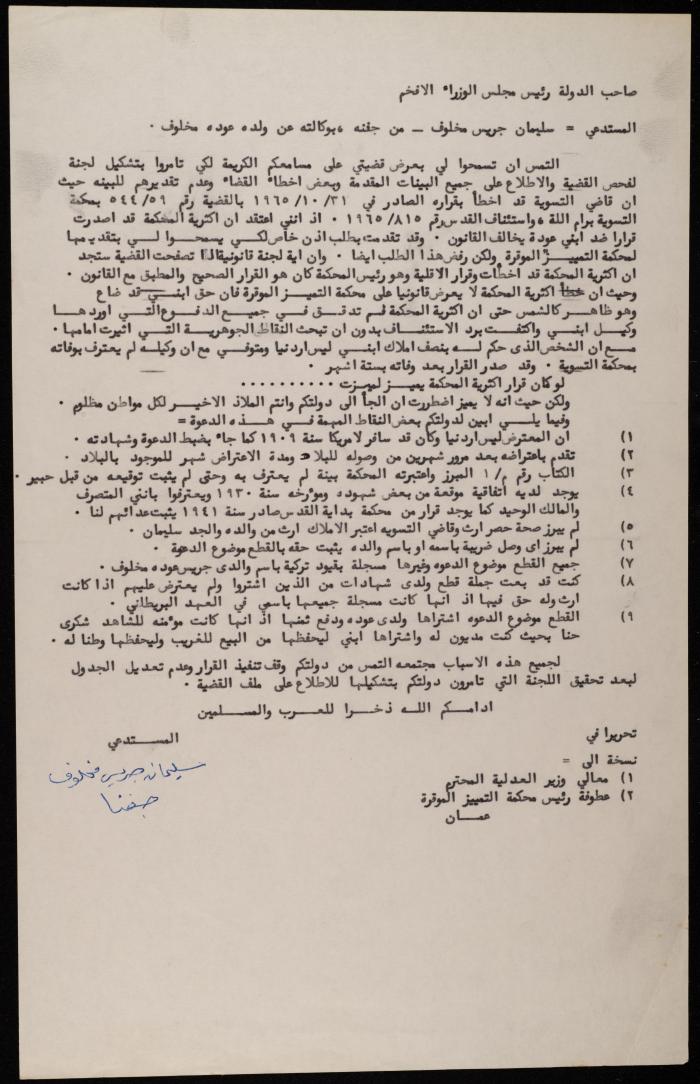 صاحب الدولة رئيس مجلس الوزراء الافخم
المستدعي = سليمان جريس مخلوف – من جفنه ،بوكالته عن ولده عوده مخلوف ٠
التمس ان تسمحوا لي بعرض قضيتي على مسامعكم الكريمة لكي تامروا بتشكيل لجنة
لفحص القضية والاطلاع على جميع البينات المقدمة وبعض اخطاء القضاء وعدم تقديرهم للبينه حيث
ان قاضي التسوية قد اخطأ بقراره الصادر في ١٩٦٥/١٠/٣١ بالقضية رقم ٥٤٤/٥٩ بمحكمة
التسوية برام اللة ،واستئناف القدس رقم ١٩٦٥/٨١٥ ٠ اذ انني اعتقد ان اكثرية المحكمة قد اصدرت
قرارا ضد ابني عودة يخالف القانون ٠ وقد تقدمت بطلب اذن خاص لكي يسمحوا لي بتقديمها
لمحكمة التمييز الموقرة ولكن رفض هذا الطلب ايضا ٠ وان اية لجنة قانونية اذا تصفحت القضية ستجد
ان اكثرية المحكمة قد اخطأت وقرار الاقلية وهو رئيس المحكمة كان هو القرار الصحيح والمطبق مع القانون ٠
وحيث ان خطأ اكثرية المحكمة لا يعرض قانونيا على محكمة التميز الموقرة فان حق ابني قد ضاع
وهو ظاهر كالشمس حتى ان اكثرية المحكمة لم تدقق في جميع الدفوع التي اوردها
وكيل ابني واكتفت برد الاستئناف بدون ان تبحث النقاط الجوهرية التي اثيرت امامها ٠
مع ان الشخص الذى حكم له بنصف املاك ابني ليس اردنيا ومتوفي مع ان وكيله لم يعترف بوفاته
بمحكمة التسوية ٠ وقد صدر القرار بعد وفاته بستة اشهر ٠
لو كان قرار اكثرية المحكمة يميز لميزت ٠٠٠٠٠٠٠٠٠٠
ولكن حيث انه لا يميز اضطررت ان الجأ الى دولتكم وانتم الملاذ الاخير لكل مواطن مظلوم ٠
وفيما يلي ابين لدولتكم بعض النقاط المهمة في هذه الدعوة =
١) ان المعترض ليس اردنيا وكان قد سافر لامريكا سنة ١٩٠٩ كما جاء بضبط الدعوة وشهادته ٠
٢) تقدم باعتراضه بعد مرور شهرين من وصوله للبلاد ومدة الاعتراض شهر للموجود بالبلاد ٠
٣) الكتاب رقم م/١ المبرز واعتبرته المحكمة بينة لم يعترف به وحتى لم يثبت توقيعه من قبل خبير ٠
٤) يوجد لديه أتفاقية موقعة من بعض شهوده ومؤرخه سنة ١٩٣٠ ويعترفوا بانني المتصرف
والمالك الوحيد كما يوجد قرار من محكمة بداية القدس صادر سنة ١٩٤١ يثبت عدائهم لنا ٠
٥) لم يبرز صحة حصر ارث وقاضي التسويه اعتبر الاملاك ارث من والده والجد سليمان ٠
٦) لم يبرز اى وصل ضريبة باسمه او باسم والده يثبت حقه بالقطع موضوع الدعوة ٠
٧) جميع القطع موضوع الدعوه وغيرها مسجلة بقيود تركية باسم والدى جريس عوده مخلوف ٠
٨) كنت قد بعت جملة قطع ولدى شهادات من الذين اشتروا ولم يعترض عليهم اذا كانت
ارث وله حق فيها اذ انها كانت مسجلة جميعها باسمي في العهد البريطاني ٠
٩) القطع موضوع الدعوه اشتراها ولدى عوده ودفع ثمنها اذ انها كانت مؤمنه للشاهد شكرى
حنا بحيث كنت مديون له واشتراها ابني ليحفظها من البيع للغريب وليحفظها وطنا له ٠
لجميع هذه الاسباب مجتمعه التمس من دولتكم وقف تنفيذ القرار وعدم تعديل الجدول
لبعد تحقيق اللجنة التي تامرون دولتكم بتشكيلها للاطلاع على ملف القضية ٠
ادامكم الله ذخرا للعرب والمسلمين
تحريرا في
المستدعي
سليمان جريس مخلوف
جفنا
نسخة الى =
١) معالي وزير العدلية المحترم
٢) عطوفة رئيس محكمة التمييز الموقرة
عمان